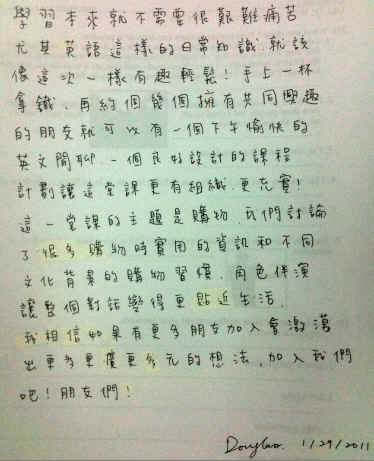 學習本來就不需要很艱難痛苦
尤其英語這樣的日常知識就該
像這次一樣有趣輕鬆！手上一杯
拿鐵、再約個幾個擁有共同興趣
的朋友就可以有一個下午愉快的
英文閒聊。一個良好設計的課程
計劃讓這堂課更有組織、更充實！
這一堂課的主題是購物，我們討論
了很多購物時實用的資訊和不同
文化背景的購物習慣。角色伴演
讓整個對話變得更貼近生活。
我相信如果有更多朋友加入會激盪
出更多更廣更多元的想法，加入我們
吧！朋友們！
Douglas. 1/29/2011